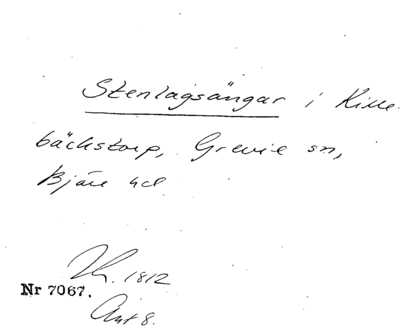 Stenlagsängar i Kille-
bäckstorp, Grevie sn,
Bjäre hd
Lk. 1812
Nr 7067.
Akt 8.